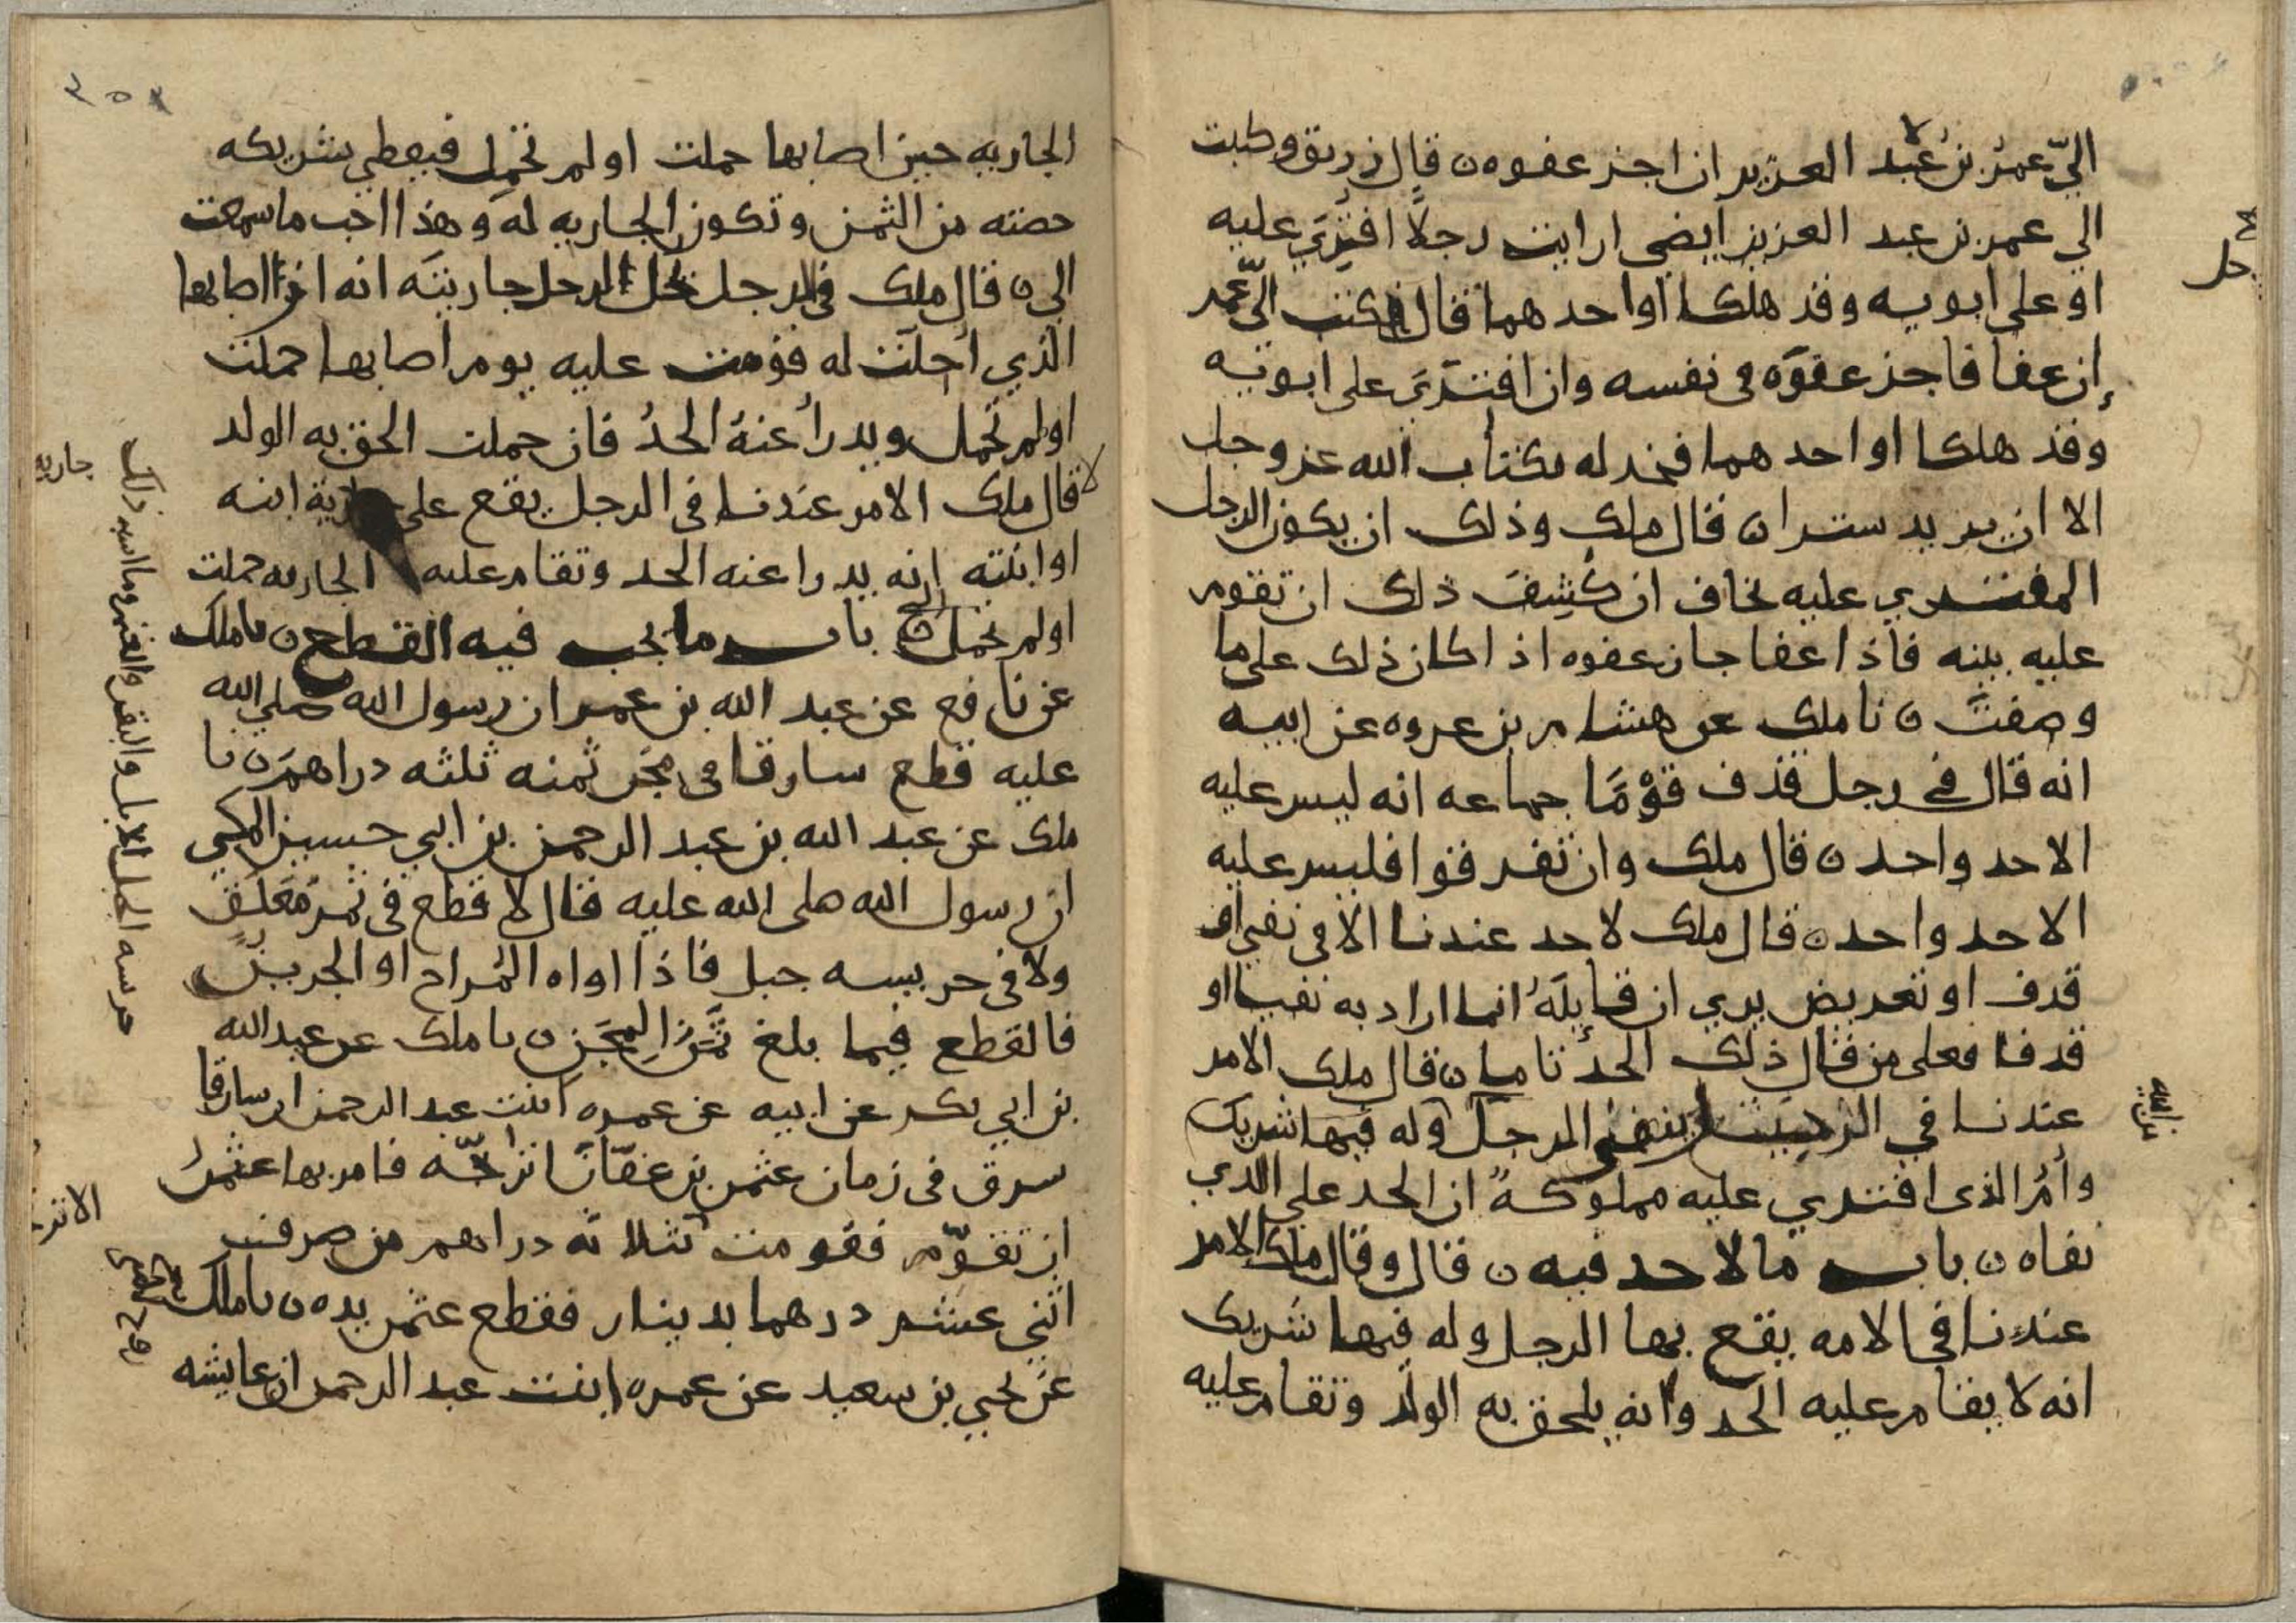 الىّ عمر بن عبد العزيز ان اجز عفوه ن قال زريق وكتبت
الي عمر بن عبد العزيز ايضى ارايت رجلا افترى عليه
او على ابويه وقد هلكا او احدهما قال فكتب الىّ عمر
إن عفا فاجز عفوه فى نفسه وان افترى على ابويه
وقد هلكا او احدهما فخذ له بكتاب الله عز وجل
الا ان يريد سترا ن قال ملك وذلك ان يكون الرجل
المفتري عليه يخاف ان كشف ذلك ان تقوم
عليه بينه فاذا عفا جاز عفوه اذا كان ذلك على ما
وصفت ن نا ملك عن هشام بن عروه عن ابيه
انه قال في رجل قذف قوما جماعه انه ليس عليه
الا حد واحد ن قال ملك وان تفرقوا فليس عليه
الا حد واحد ن قال ملك لا حد عندنا الا فى نفي او
قذف او تعريض يري ان قايله انما اراد به نفيا او
قذفا فعلى من قال ذلك الحد تاما ن قال ملك الامر
عندنا في الرجل ينفى الرجل وله فيها شريك
وأمُ الذى افتري عليه مملوكة ان الحد على الذي
نفاه ن باب ما لا حد فيه ن قال وقال ملك الامر
عندنا فى الامه يقع بها الرجل وله فيها شريك
انه لا يقام عليه الحد وانه يلحق به الولد وتقام عليه
رجل
الجاريه حين اصابها حملت او لم تحمل فيعطي شريكه
حصته من الثمن وتكون الجاريه له وهذا احب ما سمعت
الي ن قال ملك فى الرجل يحل الرجل جاريته انه اذا اصابها
الذي احلت له قومت عليه يوم اصابها حملت
او لم تحمل ويدرأ عنه الحدُ فان حملت الحق به الولد
قال ملك الامر عندنا فى الرجل يقع على جارية ابنه
او ابنته انه يدرا عنه الحد وتقام عليه الجاريه حملت
او لم تحمل باب ما يجب فيه القطع ن نا ملك
عن نافع عن عبد الله بن عمر ان رسول الله صلى الله
عليه قطع سارقا فى مجن ثمنه ثلثه دراهم ن نا
ملك عن عبد الله بن عبد الرحمن بن ابي حسين المكي
ان رسول الله صلى الله عليه قال لا قطع فى ثمر معلق
ولا فى حريسه جبل فاذا اواه المُراح او الجرين
فالقطع فيما بلغ ثمن المجن ن نا ملك عن عبد الله
بن ابي بكر عن ابيه عن عمره ابنت عبد الرحمن ان سارقا
سرق فى زمان عثمن بن عفان اترجّه فامر بها عثمن
ان تقوّم فقومت بثلاثه دراهم من صرف
اثني عشر درهما بدينار فقطع عثمن يده ن نا ملك
عن يحيي بن سعيد عن عمره ابنت عبد الرحمن ان عايشه
جاريه
حرسه الجبل الابل والبقر والغنم وما اشبه ذلك